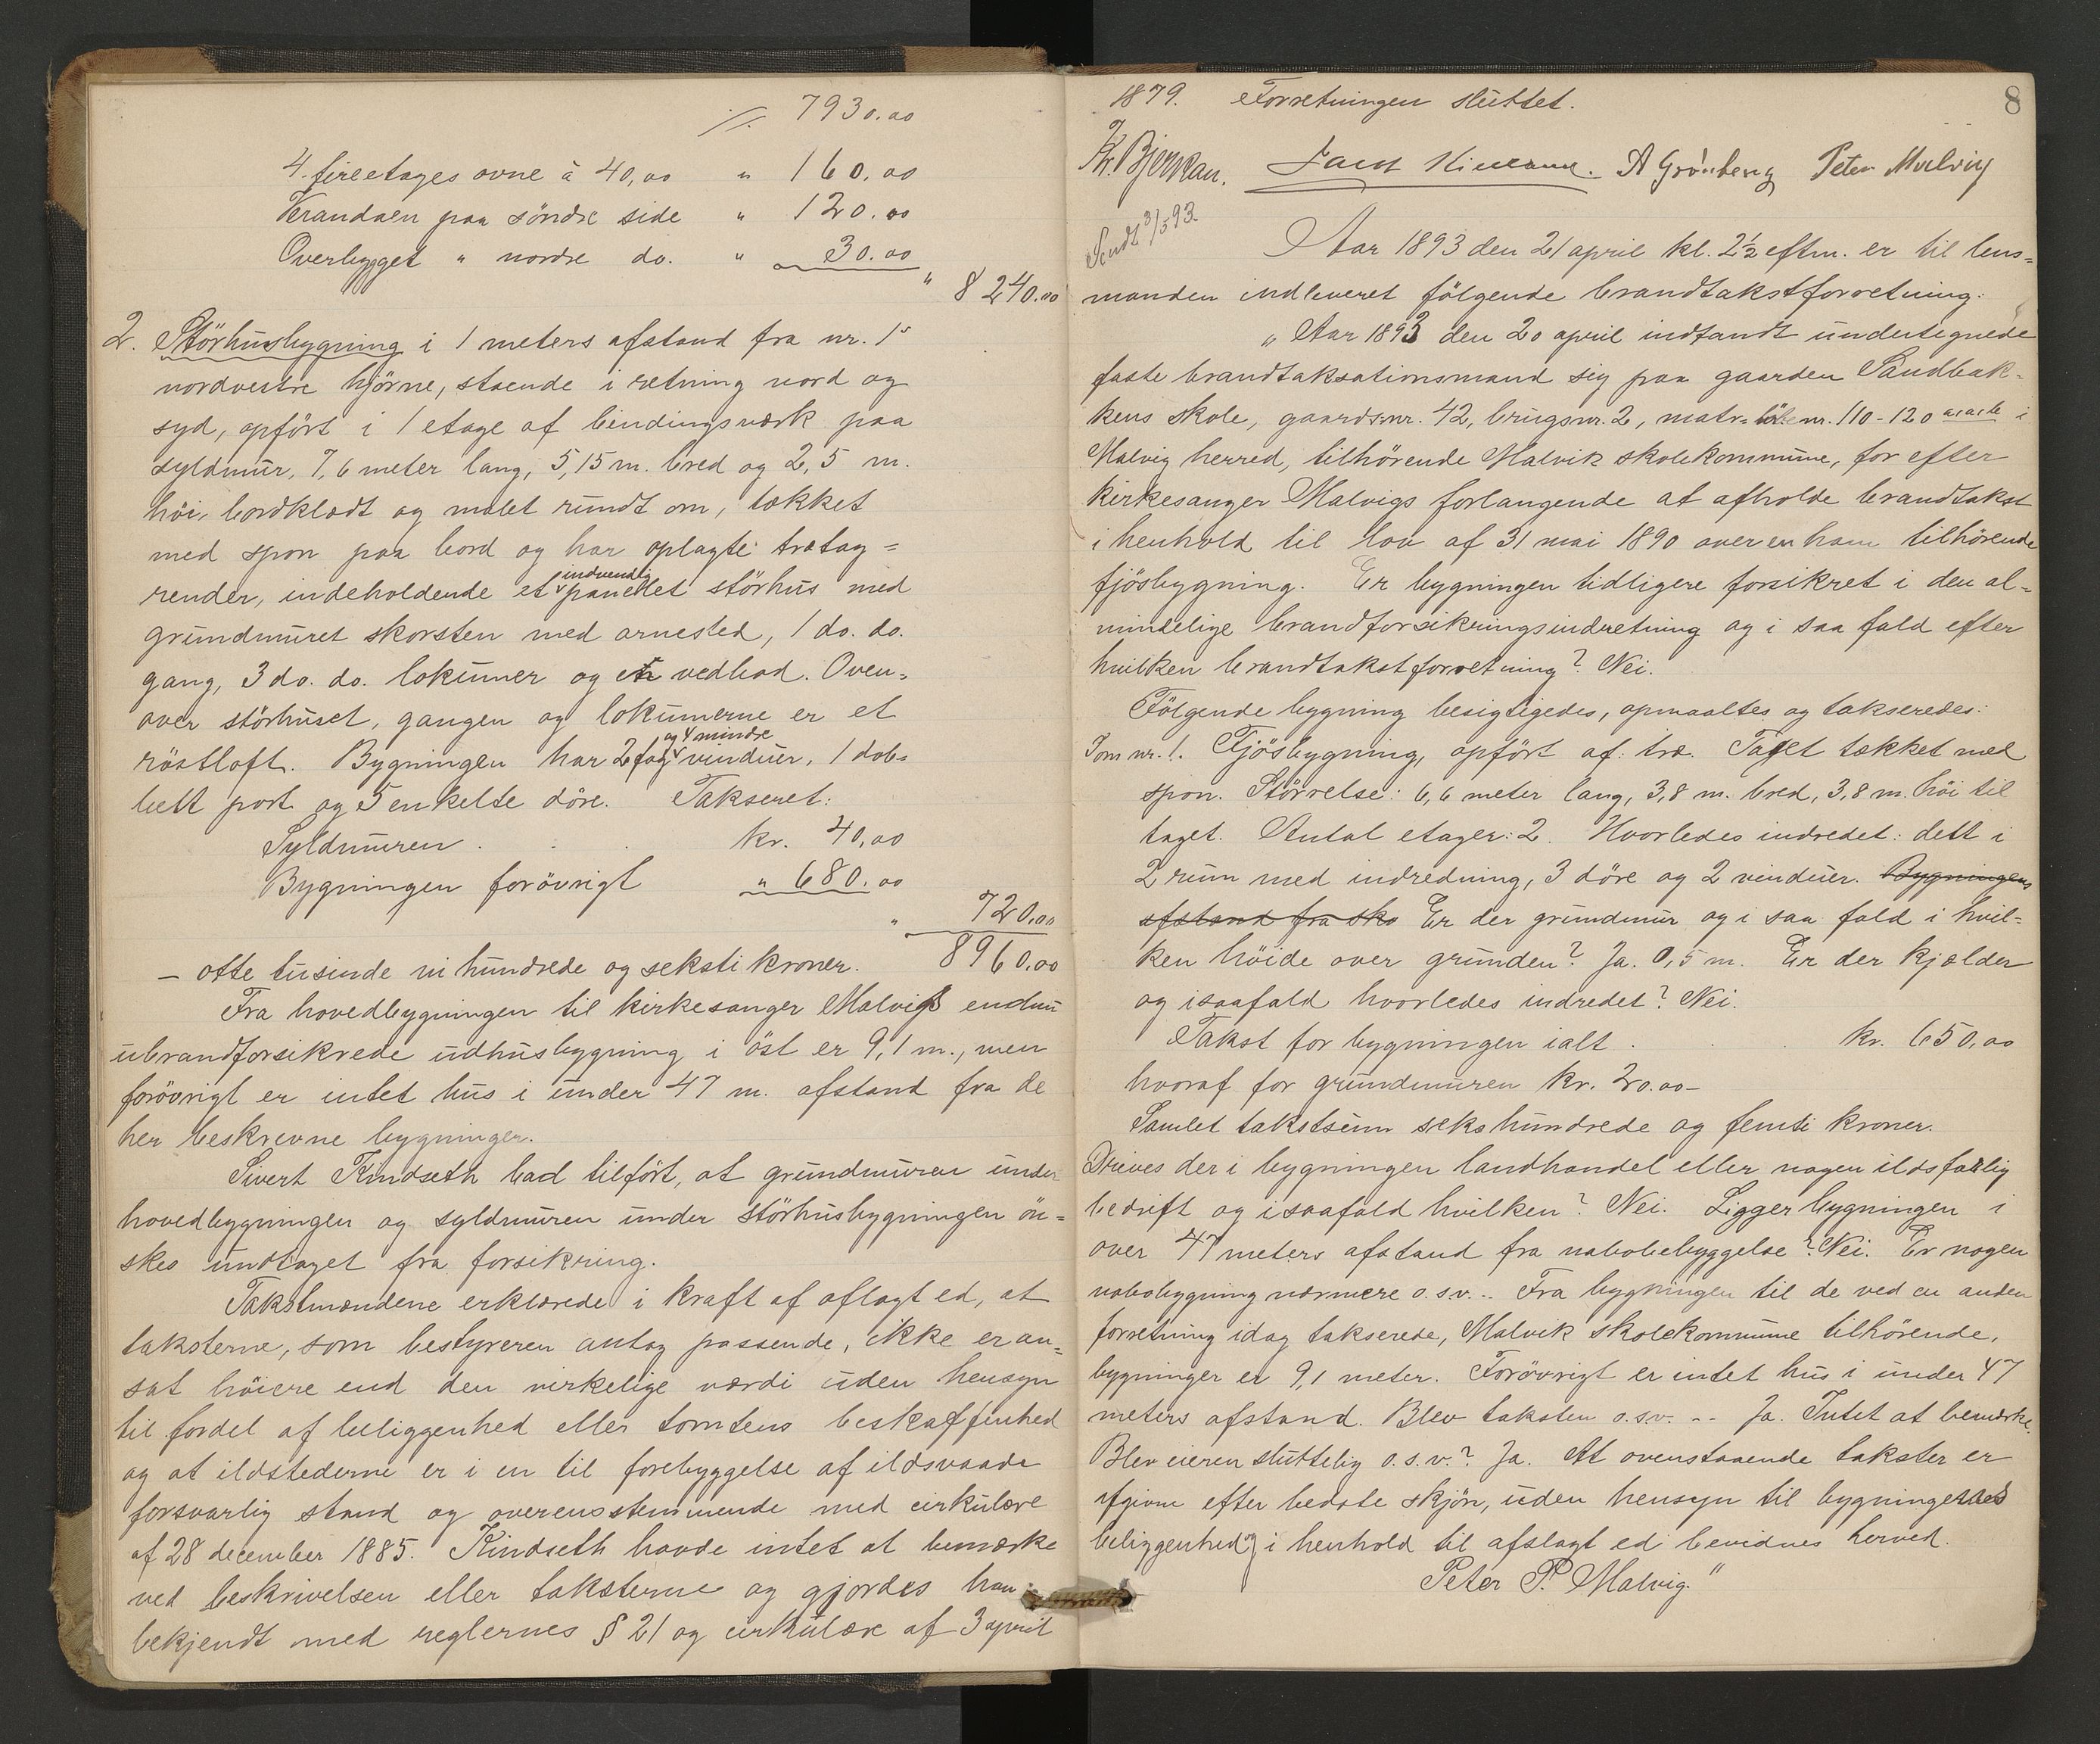 ⁒ 7930.00
4 fireetages ovne à 40,00 " 160.00
Verandaen paa söndre side " 120.00
Overbygget " nordre do. " 30.00
" 8240.00
2. Störhusbygning i 1 meters afstand fra nr. 1s
nordvestre hjörne, staende i retning nord og
syd, opfört i 1 etage af bindingsværk paa
syldmur, 7,6 meter lang, 5,15 m. bred og 2,5 m.
höi, bordklædt og malet rundt om, tækket
med spon paa bord og har oplagte trætag=
render, indeholdende et indvendig panelet störhus med
grundmuret skorsten med arnested, 1 do. do.
gang, 3 do. do. lokumer og et vedbod. Oven=
over störhuset, gangen og lokumerne er et
röstloft. Bygningen har 2 fag og 4 mindre vinduer, 1 dob=
belt port og 5 enkelte döre. Takseret:
Syldmuren . . . kr. 40,00
Bygningen forövrigt " 680.00
" 720,00
— otte tusinde ni hundrede og seksti kroner. 8960,00
Fra hovedbygningen til kirkesanger Malvigs endnu
ubrandforsikrede udhusbygning i öst er 9,1 m., men
forövrigt er intet hus i under 47 m. afstand fra de
her beskrevne bygninger.
Sivert Kindseth bad tilfört, at grundmuren under
hovedbygningen og syldmuren under störhusbygningen ön=
skes undtaget fra forsikring.
Takstmændene erklærede i kraft af aflagt ed, at
taksterne, som bestyreren antog passende, ikke er an=
sat höiere end den virkelige værdi uden hensyn
til fordel af beliggenhed eller tomtens beskaffenhed
og at ildstederne er i en til forebyggelse af ildsvaade
forsvarlig stand og overensstemmende med cirkulære
af 28 december 1885. Kindseth havde intet at bemærke
ved beskrivelsen eller taksterne og gjordes han
bekjendt med reglernes § 21 og cirkulære af 3 april
8
1879. Forretningen sluttet.
Kr. Bjerkan. A Grönberg Peter Malvig
Sendt 3/5 93.
Aar 1893 den 21 april kl. 2½ eftm. er til lens=
manden indleveret fölgende brandtakstforretning:
„ Aar 1893 den 20 april indfandt undertegnede
faste brandtaksationsmand sig paa gaarden Sandbak=
kens skole, gaardsnr. 42, brugsnr. 2, matr= nr. 110-120 i
Malvig herred, tilhörende Malvik skolekommune, for efter
kirkesanger Malvigs forlangende at afholde brandtakst
i henhold til lov af 31 mai 1890 over en ham tilhörende
fjösbygning. Er bygningen tidligere forsikret i den al=
mindelige brandforsikringsindretning og i saa fald efter
hvilken brandtakstforretning? Nei.
Fölgende bygning besigtigedes, opmaaltes og takseredes:
Som nr. 1. Fjösbygning, opfört af: træ. Taget tækket med
spon. Störrelse: 6,6 meter lang, 3,8 m. bred, 3,8 m. höi til
taget. Antal etager: 2. Hvorledes indredet: delt i
2 rum med indredning, 3 döre og 2 vinduer. Bygningens
afstand fra sko Er der grundmur og i saa fald i hvil=
ken höide over grunden? Ja. 0,5 m. Er der kjælder
og isaafald hvorledes indredet? Nei.
Takst for bygningen ialt . . . kr. 650,00
hvoraf for grundmuren kr. 20.00—
Samlet takstsum sekshundrede og femti kroner.
Drives der i bygningen landhandel eller nogen ildsfarlig
bedrift og isaafald hvilken? Nei. Ligger bygningen i
over 47 meters afstand fra nabobebyggelse? Nei. Er nogen
nabobygning nærmere o.s.v. .. Fra bygningen til de ved en anden
forretning idag takserede, Malvik skolekommune tilhörende,
bygninger er 9,1 meter. Forövrigt er intet hus i under 47
meters afstand. Blev taksten o.s.v. -- Ja. Intet at bemærke.
Blev eieren sluttelig o.s.v.? Ja. At ovenstaaende takster er
afgivne efter bedste skjön, uden hensyn til bygningernes
beliggenhed og i henhold til aflagt ed bevidnes herved.
Peter P. Malvig."